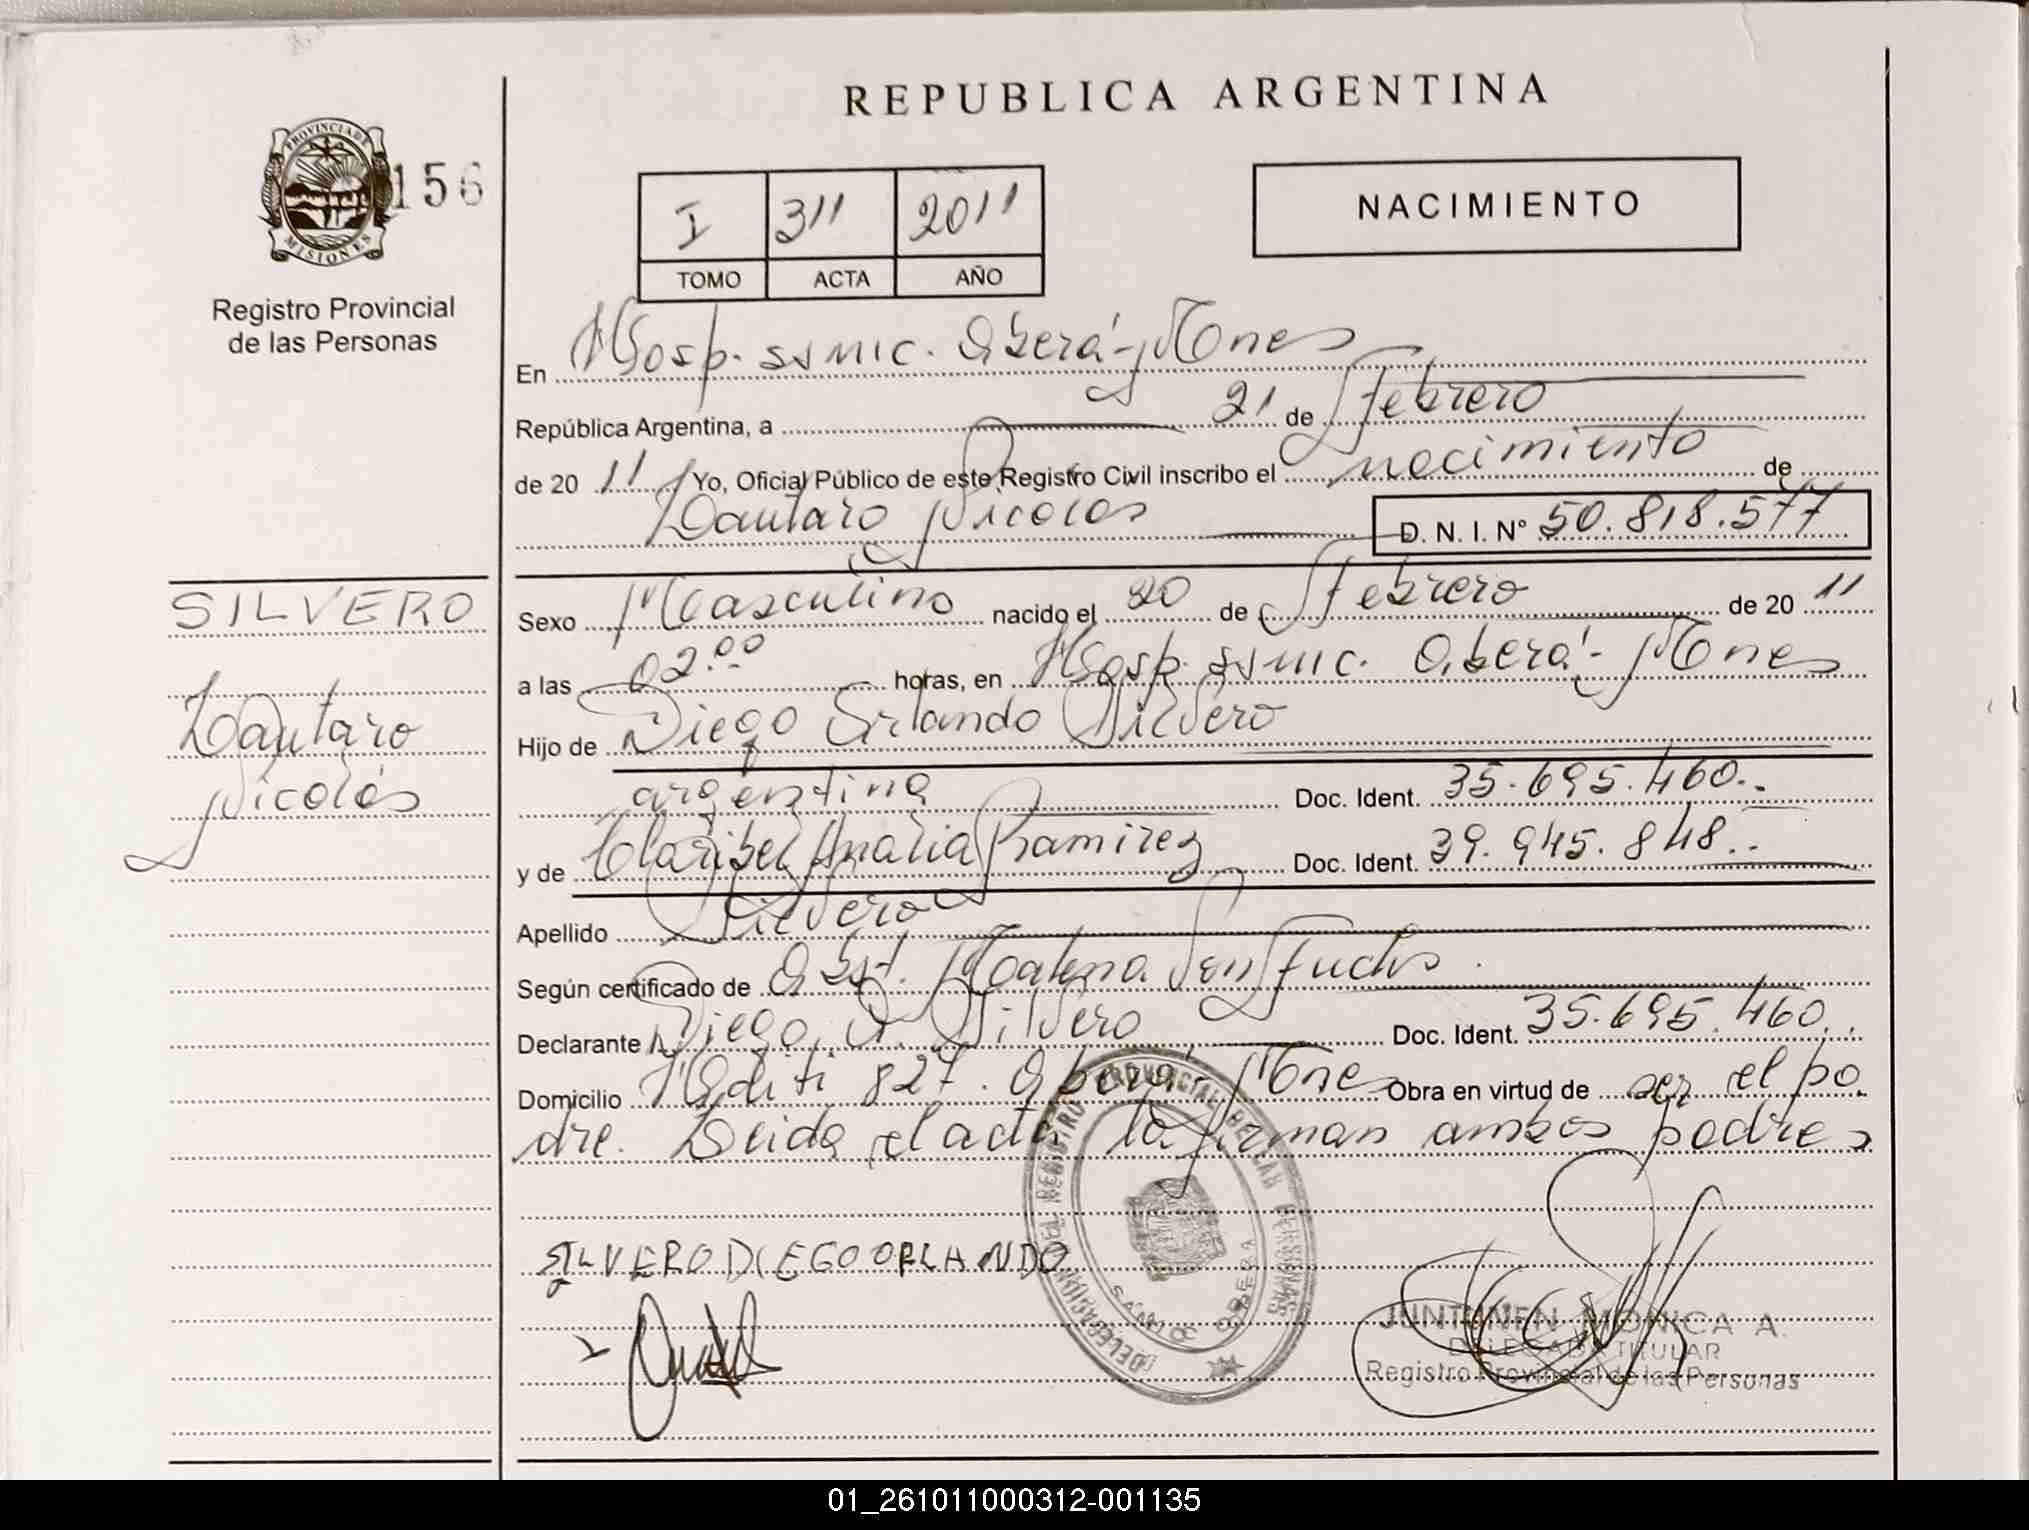 REPUBLICA ARGENTINA
PROVINCIA DE
MISIONES
156
Registro Provincial
de las Personas
I 311 2011
TOMO ACTA AÑO
NACIMIENTO
En Hosp. ssmic. Oberá - Mnes
República Argentina, a 21 de febrero
de 2011 Yo, Oficial Público de este Registro Civil inscribo el nacimiento de
Lautaro Nicolás D. N. I. Nº 50.818.577
SILVERO
Lautaro
Nicolás
Sexo Masculino nacido el 20 de febrero de 2011
a las 02.00 horas, en Hosp. ssmic. Oberá - Mnes
Hijo de Diego Orlando Silvero
argentina Doc. Ident. 35.695.460..
y de Claribel Analia Ramirez Doc. Ident. 39.945.848..
Apellido Silvero
Según certificado de Obst.
Declarante Diego O. Silvero Doc. Ident. 35.695.460..
Domicilio 827. Oberá - Mnes Obra en virtud de ser el pa
dre. Leida el acta la firman ambos padres
SILVERO DIEGO ORLANDO
DELEGACION DEL REGISTRO PROVINCIAL DE LAS PERSONAS
OBERA
JUNTUNEN MONICA A.
DELEGADA TITULAR
Registro Provincial de las Personas
01_261011000312-001135